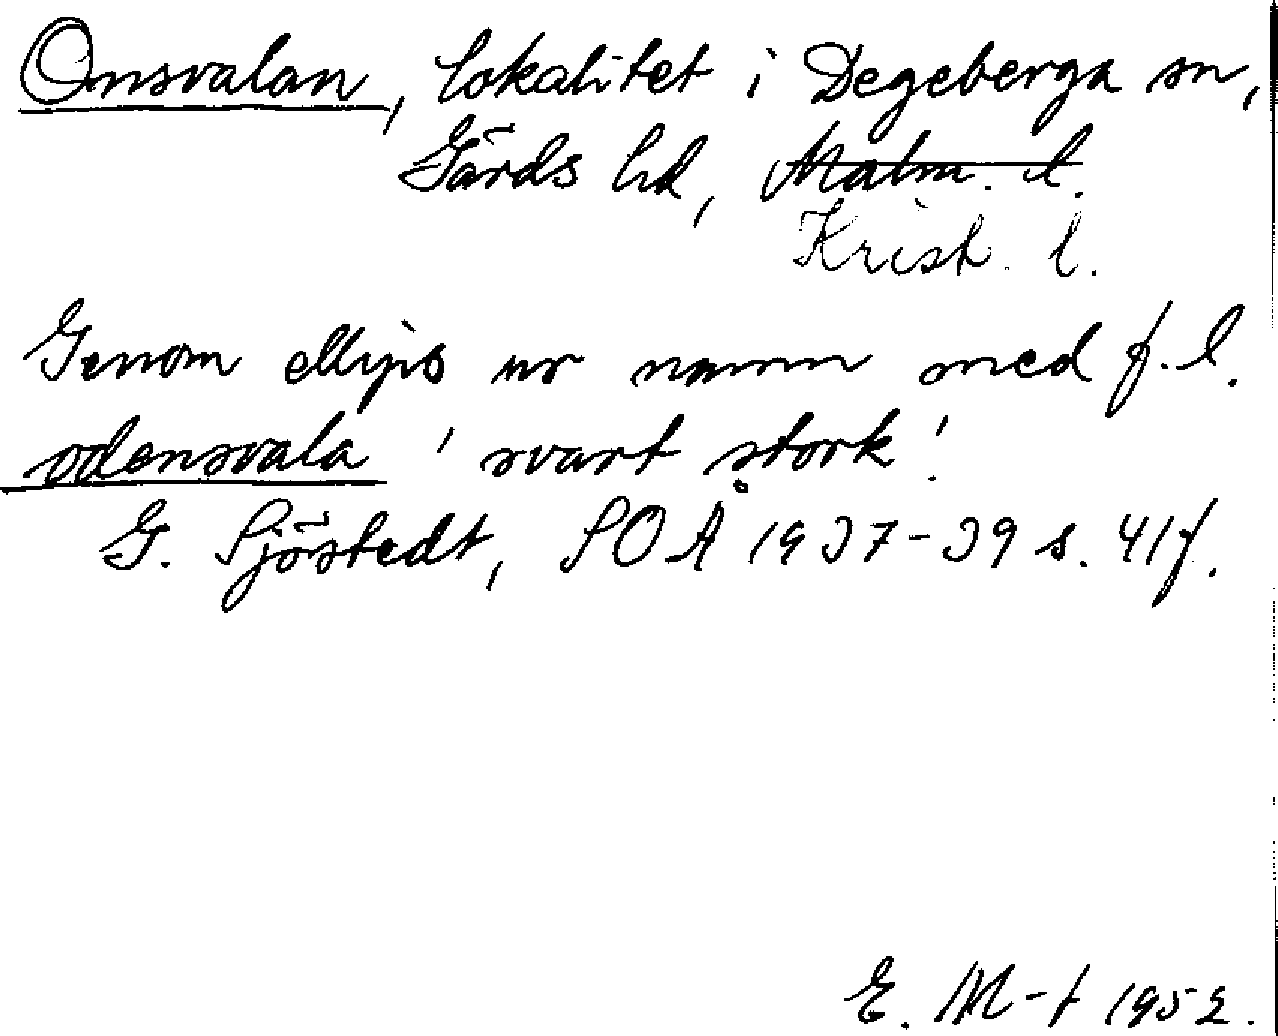 Onsvalan, lokalitet i Degeberga sn,
Gärds hd, Malm. l.
Krist. l.
Genom ellips ur namn med f. l.
odensvala 'svart stork'.
G. Sjöstedt, SOÅ 1937-39 s. 41f.
E. M-t 1952.